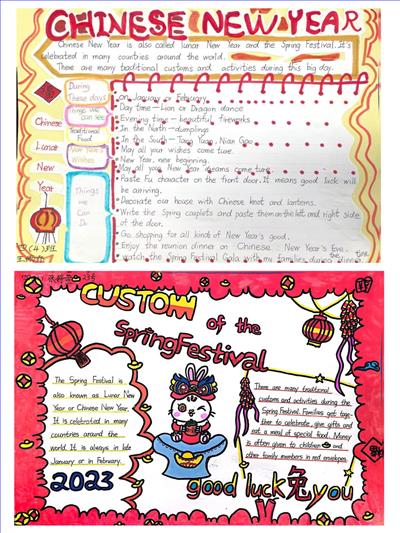 CHINESE NEW YEAR
Chinese New Year is also called lunar New Year and the Spring Festival. It's
celebrated in many countries around the world.
There are many traditional customs and activities during this big day.
During
These days
on January or February
Things we
can see
Day time—Lion or Dragon dance
Evening time— beautiful fireworks
Traditional
Food
In the North—dumplings
In the South— Tang Yuan, Nian Gao
New Year's
Wishes
May all your wishes come ture.
New Year, new beginning.
May all your New Years dreams come ture.
Chinese
Lunar
New
Year
Things
we
Can
Do
Paste Fu character on the front door. It means good luck will
be arriving.
Decorate our house with Chinese knot and lantens.
Write the Spring couplets and paste them on the left and right side
of the door.
Go shopping for all kinds of New Year's good.
Enjoy the reunion dinner on Chinese New Year's Eve.
watch the Spring Festival Gala with my families during the time
(4)班
CUSTOM
of the
Spring Festival
The Spring Festival is
also known as Lunar New
Year or Chinese New Year.
It is celebrated in many
countries around the
world. It is always in late
January or in February.
2023
There are many traditional
customs and activities during the
Spring Festival. Families get toge-
ther to celebrate, give gifts and
eat a meal of special food. Money
is often given to children and
other family members in red envelopes.
good luck 兔 you